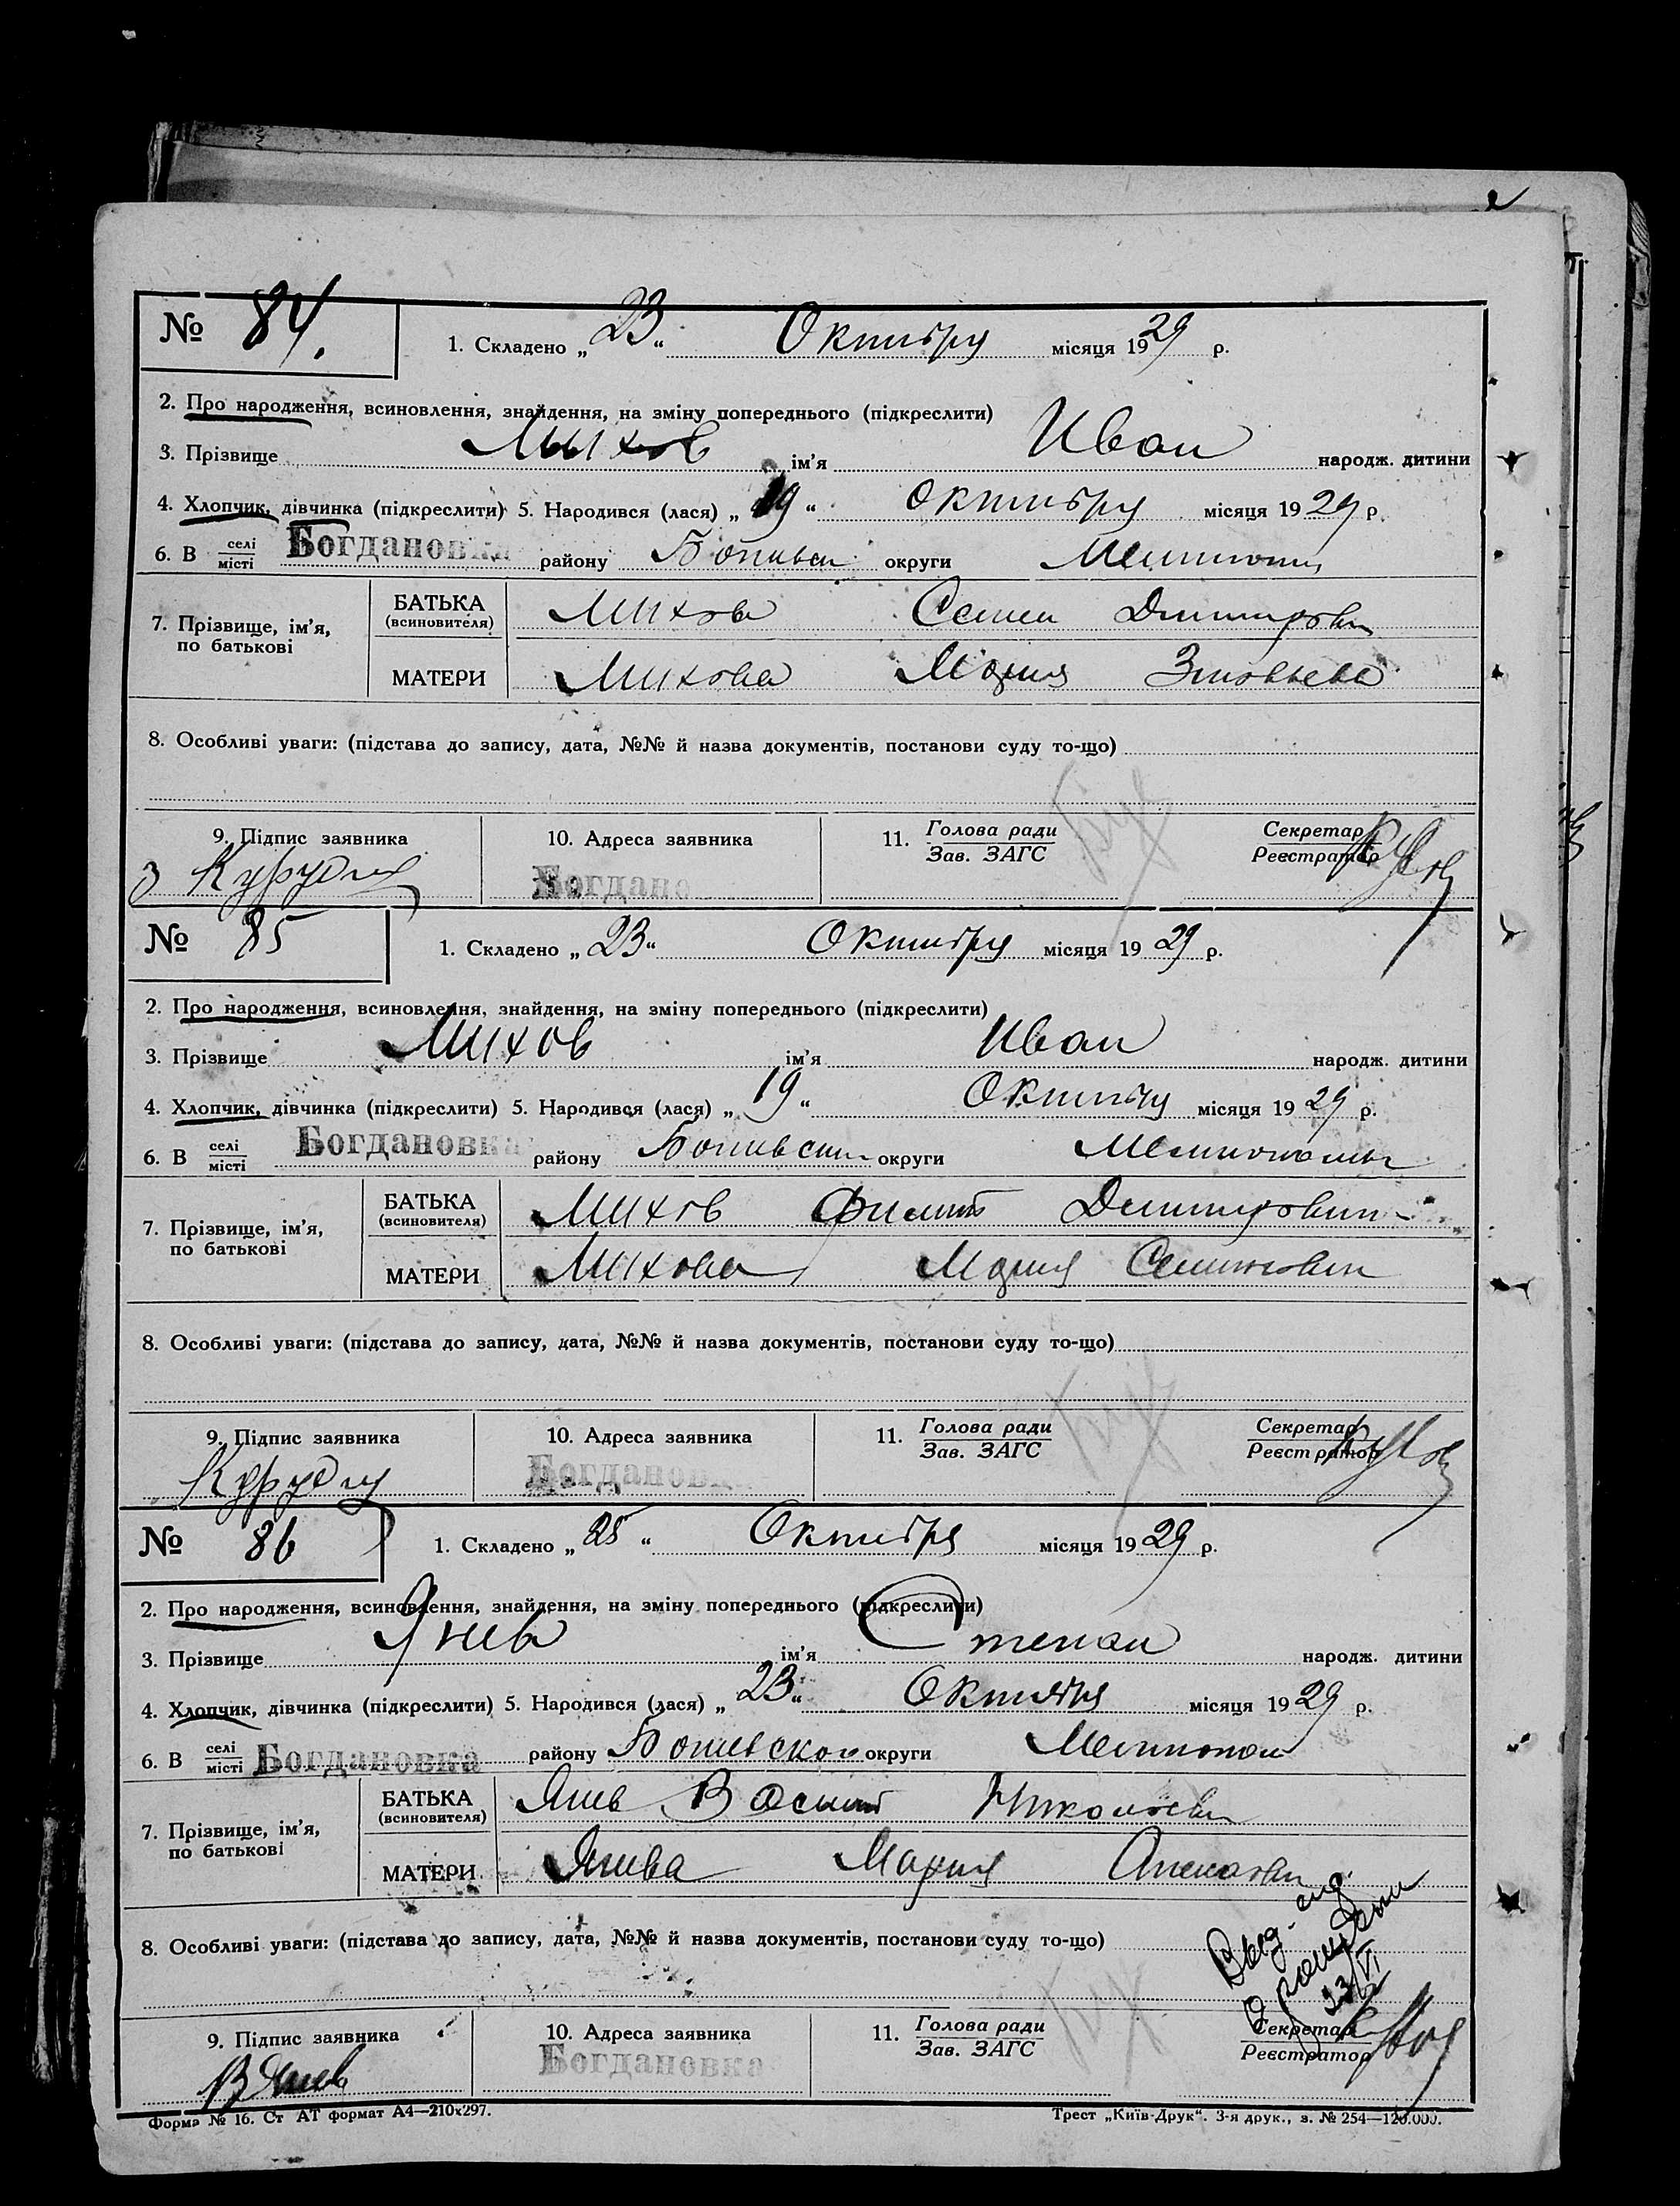 № 84. 1. Складено „23“ Октября місяця 1929 р.
2. Про народження, всиновлення, знайдення, на зміну попереднього (підкреслити)
3. Прізвище Михов ім'я Иван народж. дитини
4. Хлопчик, дівчинка (підкреслити) 5. Народився (лася) „19“ Октября місяця 1929 р.
6. В селі місті Богдановка району округи
7. Прізвище, ім'я, по батькові
БАТЬКА (всиновителя) Михов Семен
МАТЕРИ Михова Мария
8. Особливі уваги: (підстава до запису, дата, №№ й назва документів, постанови суду то-що)
9. Підпис заявника 10. Адреса заявника 11. Голова ради Зав. ЗАГС Секретар Реєстратор
Богдано
№ 85 1. Складено „23“ Октября місяця 1929 р.
2. Про народження, всиновлення, знайдення, на зміну попереднього (підкреслити)
3. Прізвище Михов ім'я Иван народж. дитини
4. Хлопчик, дівчинка (підкреслити) 5. Народився (лася) „19“ Октября місяця 1929 р.
6. В селі місті Богдановка району округи
7. Прізвище, ім'я, по батькові
БАТЬКА (всиновителя) Михов Филип
МАТЕРИ Михова Мария
8. Особливі уваги: (підстава до запису, дата, №№ й назва документів, постанови суду то-що)
9. Підпис заявника 10. Адреса заявника 11. Голова ради Зав. ЗАГС Секретар Реєстратор
Богданов
№ 86 1. Складено „25“ Октября місяця 1929 р.
2. Про народження, всиновлення, знайдення, на зміну попереднього (підкреслити)
3. Прізвище Янев ім'я Степан народж. дитини
4. Хлопчик, дівчинка (підкреслити) 5. Народився (лася) „23“ Октября місяця 1929 р.
6. В селі місті Богдановка району Ботиевского округи
7. Прізвище, ім'я, по батькові
БАТЬКА (всиновителя) Янев
МАТЕРИ Янева Мария
8. Особливі уваги: (підстава до запису, дата, №№ й назва документів, постанови суду то-що)
9. Підпис заявника 10. Адреса заявника 11. Голова ради Зав. ЗАГС Секретар Реєстратор
В Янев Богдановка
Форма № 16. Ст АТ формат А4—210х297. Трест „Київ-Друк“. 3-я друк., з. № 254—120.000.